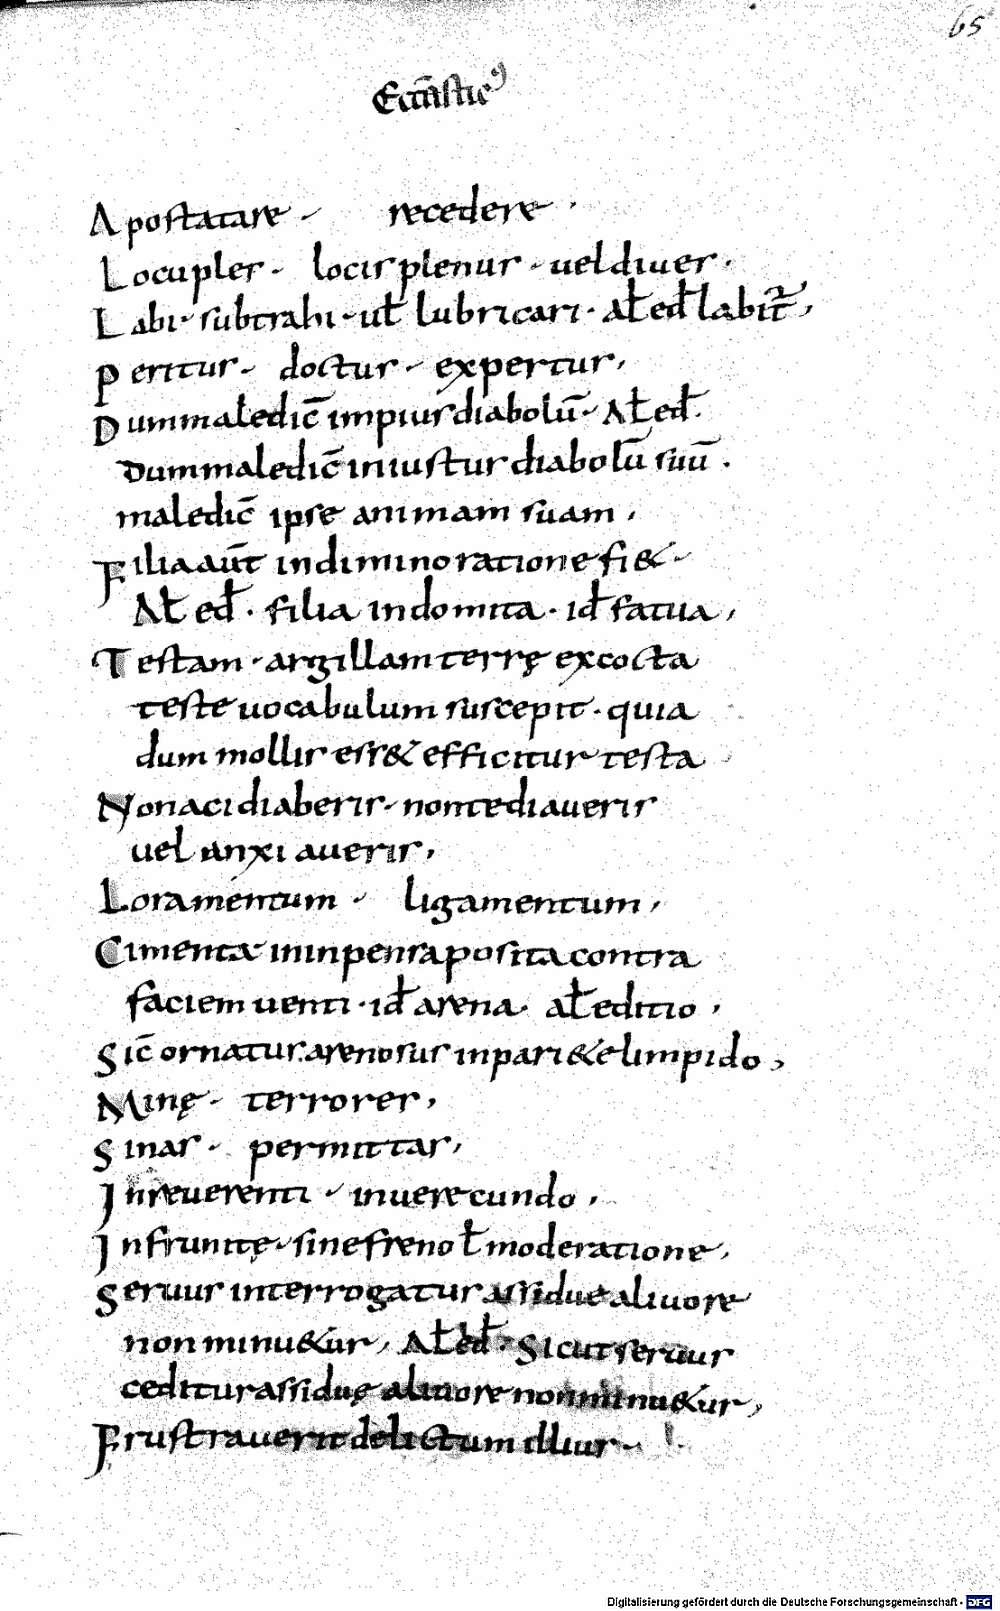 65
Eccl̄astic⁹
Apostatare · recedere ·
Locuples · locis plenus · vel dives ·
Labi · subtrahi · ul̄ lubricari · al̄ ed̄ labit̄ ,
Peritus · doctus · expertus ,
Dum maledic̄ impius diabolū · Al̄ ed̄ .
Dum maledic̄ iniustus diabolū suū .
maledic̄ ipse animam suam ,
Filia aūt in diminoratione fi& ·
Al̄ ed̄ . filia indomita · id̄ fatua ,
Testam · argillam terrę excocta
teste uocabulum suscepit · quia
dum mollis ess& efficitur testa
Non acidiaberis · non tediaveris
uel anxiaveris ,
Loramentum · ligamentum ,
Cimenta in inpensa posita contra
faciem uenti · id̄ arena · al̄ editio ,
Sic̄ ornatus arenosus in pari&e limpido ,
Minę · terrores ,
Sinas · permittas ,
Inreverenti · inverecundo ,
Infrunitę · sine freno l̄ moderatione ,
Servus interrogatus assidue a livore
non minu&ur , Al̄ ed̄ · Sicut servus
ceditur assiduę a livore non minu&ur ,
Frustraverit delictum illius ·
Digitalisierung gefördert durch die Deutsche Forschungsgemeinschaft - DFG